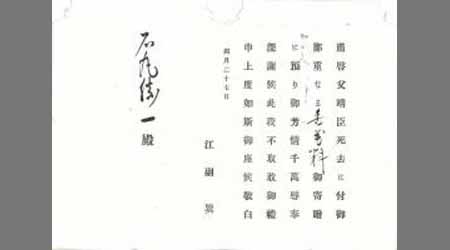 啓父靖臣死去に付御
鄭重なる料御寄贈
に預り御芳情千萬辱奉
深謝候此段不取敢御禮
申上度如斯御座候敬白
四月二十七日
江副
石丸勝一殿